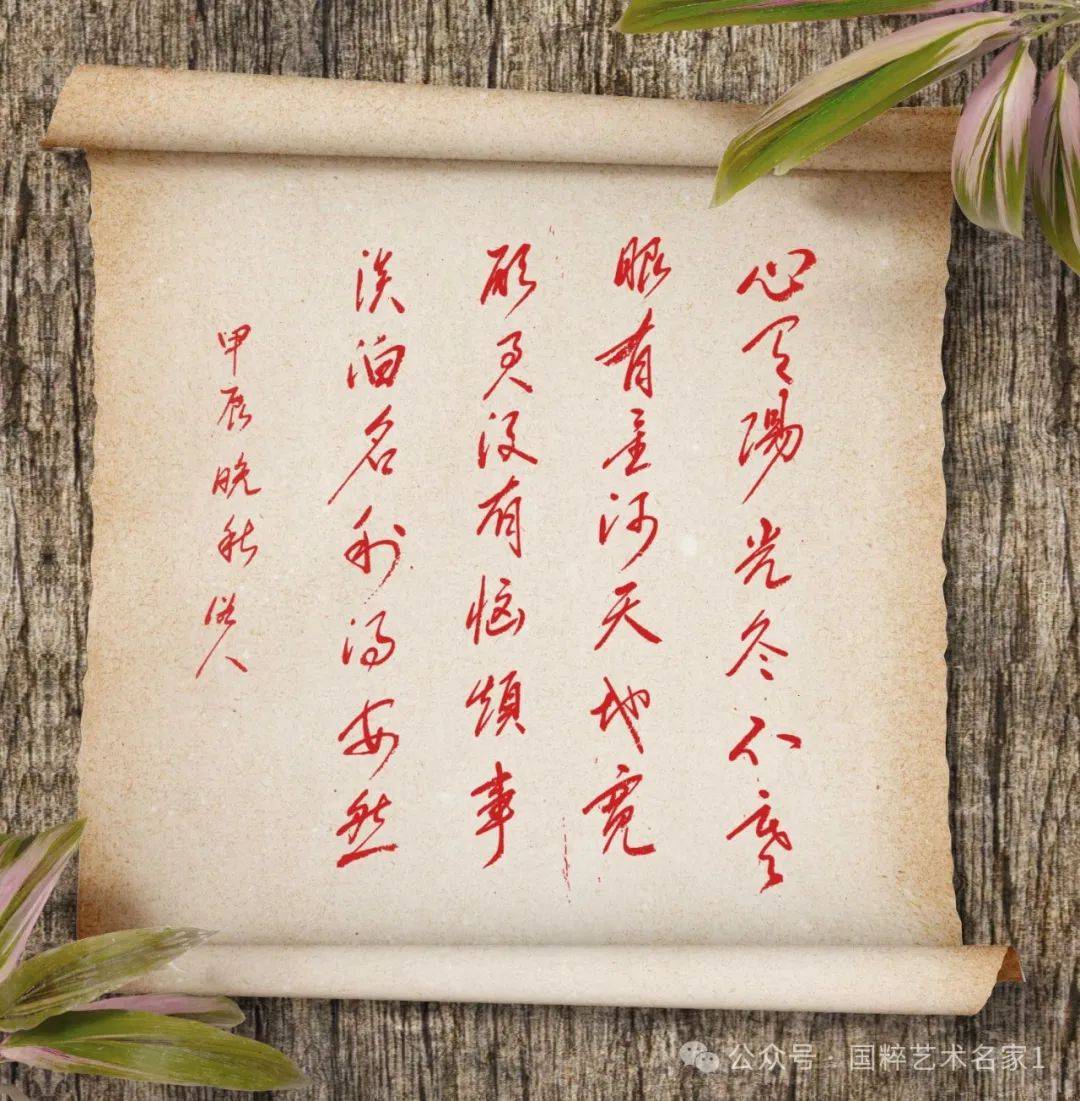 心有陽光冬不寒
眼有星河天地宽
没有恼烦事
淡泊名利得安然
甲辰晚秋 俗人
公众号·国粹艺术名家1